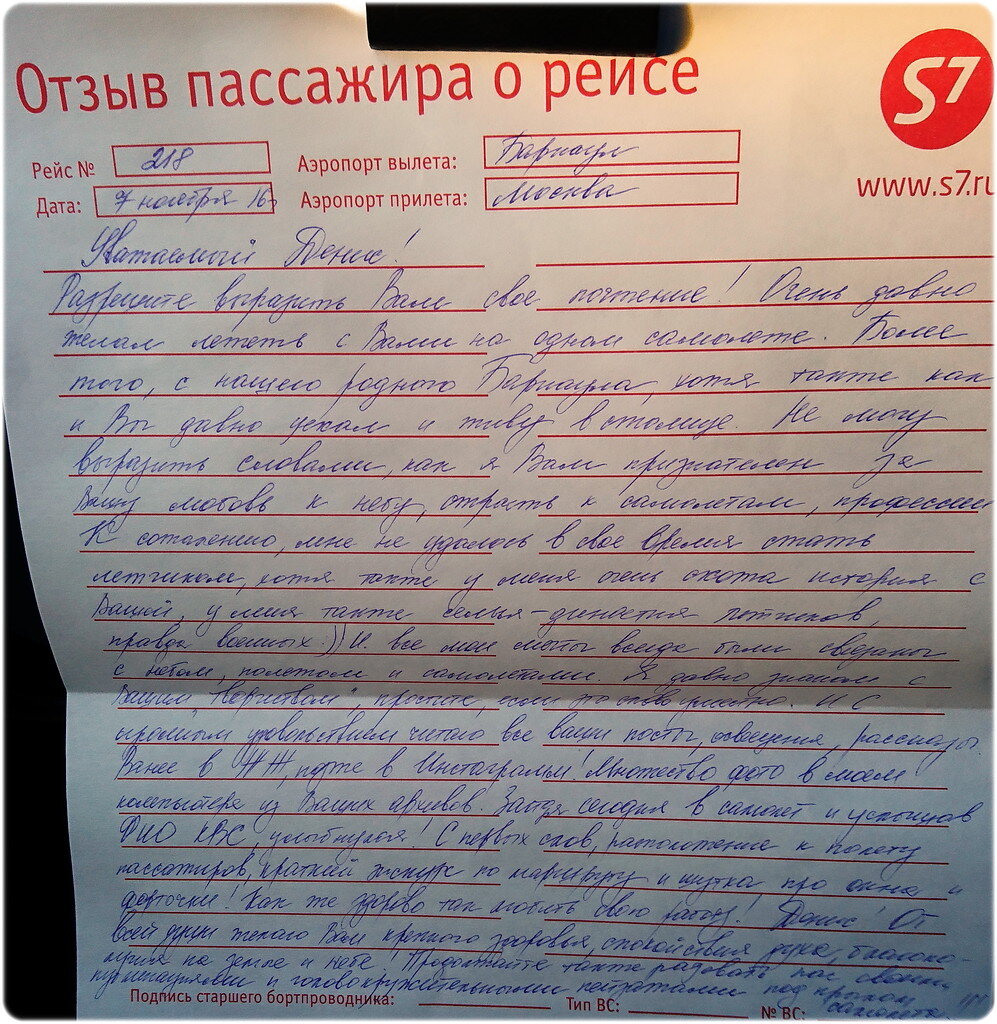 Отзыв пассажира о рейсе
S7
Рейс № 218
Аэропорт вылета: Барнаул
www.s7.ru
Дата: 7 ноября 16г
Аэропорт прилета: Москва
Уважаемый Денис!
Разрешите выразить Вам свое почтение! Очень давно
желал лететь с Вами на одном самолете. Более
того, с нашего родного Барнаула, хотя также как
и Вы давно уехал и живу в столице. Не могу
выразить словами, как я Вам признателен за
Вашу любовь к небу, страсть к самолетам, профессии
К сожалению, мне не удалось в свое время стать
летчиком, хотя также у меня очень схожа история с
Вашей, у меня также семья-династия летчиков,
правда военных :)) И все мои мечты всегда были связаны
с небом, полетом и самолетами. Я давно знаком с
Вашим "творчеством", простите, если это слово уместно. И с
огромным удовольствием читаю все ваши посты, освещения, рассказы.
Ранее в ЖЖ, позже в Инстаграмм! Множество фото в моем
компьютере из Ваших архивов. Зайдя сегодня в самолет и услышав
ФИО КВС, улыбнулся! С первых слов, расположение к полету
пассажиров, краткий экскурс по маршруту и шутка про окна и
форточки! Как же здорово так любить свою работу! Денис! От
всей души желаю Вам крепкого здоровья, спокойствия духа, благопо-
лучия на земле и небе! Продолжайте также радовать нас своими
и головокружительными пейзажами под крылом самолета.
Подпись старшего бортпроводника:
Тип ВС:
№ ВС: